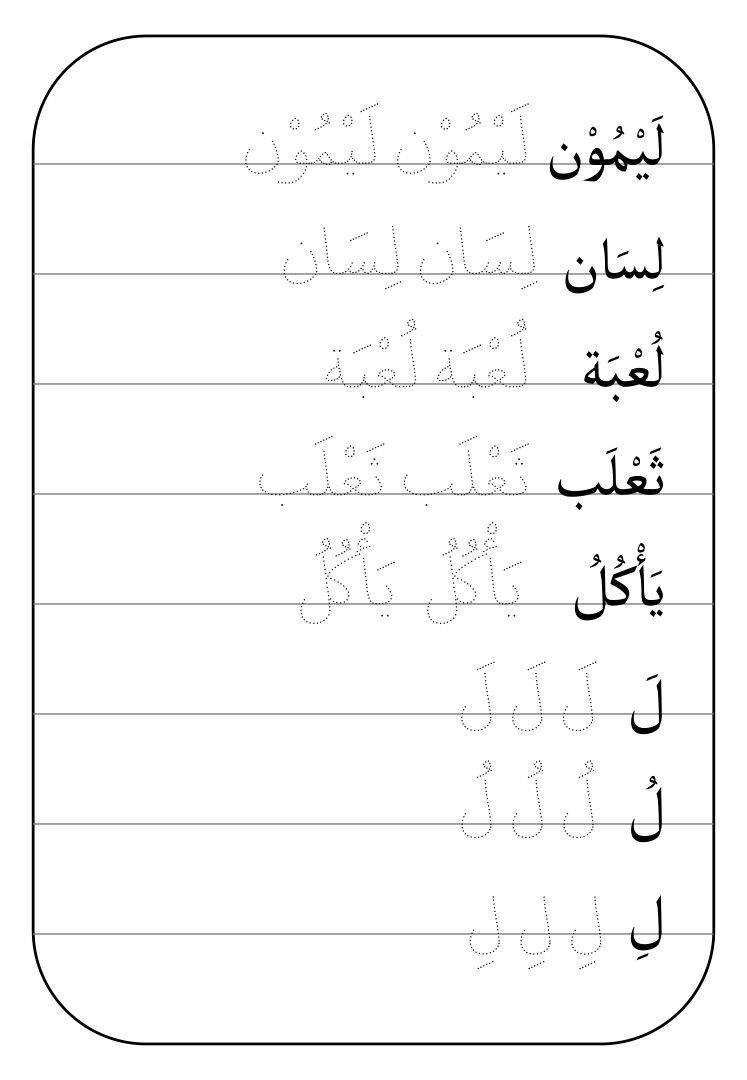 لَيْمُوْن لَيْمُوْن لَيْمُوْن
لِسَان لِسَان لِسَان
لُعْبَة لُعْبَة لُعْبَة
ثَعْلَب ثَعْلَب ثَعْلَب
يَأْكُلُ يَأْكُلُ يَأْكُلُ
لَ لَ لَ لَ
لُ لُ لُ لُ
لِ لِ لِ لِ